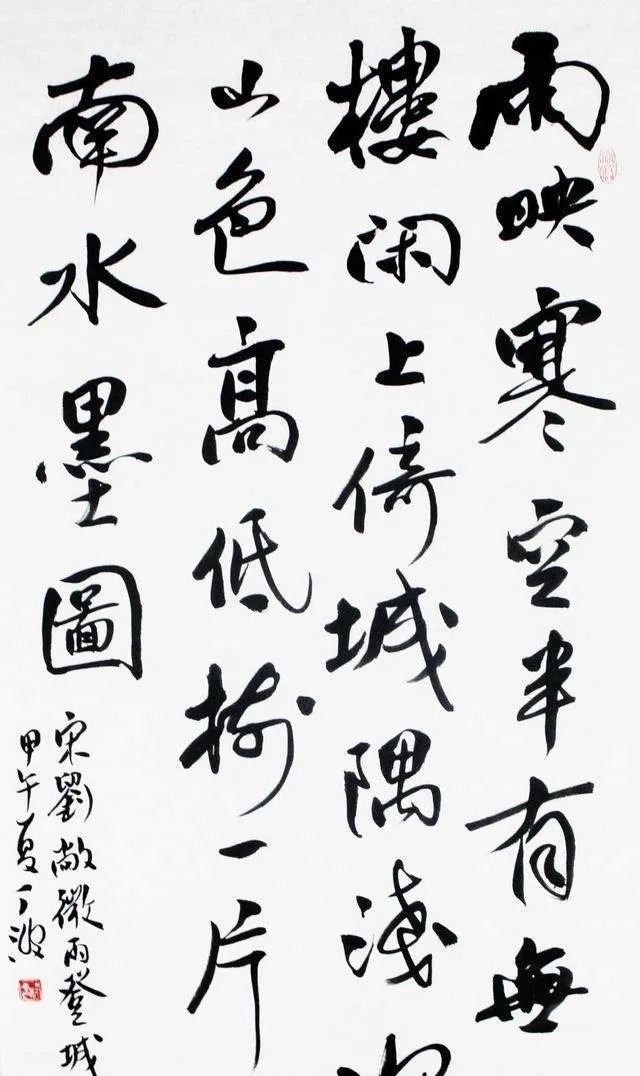 雨映寒空半有無
樓閑上倚城隅淺
山色高低樹一片
南水墨圖
宋劉敞微雨登城
甲午夏丁波